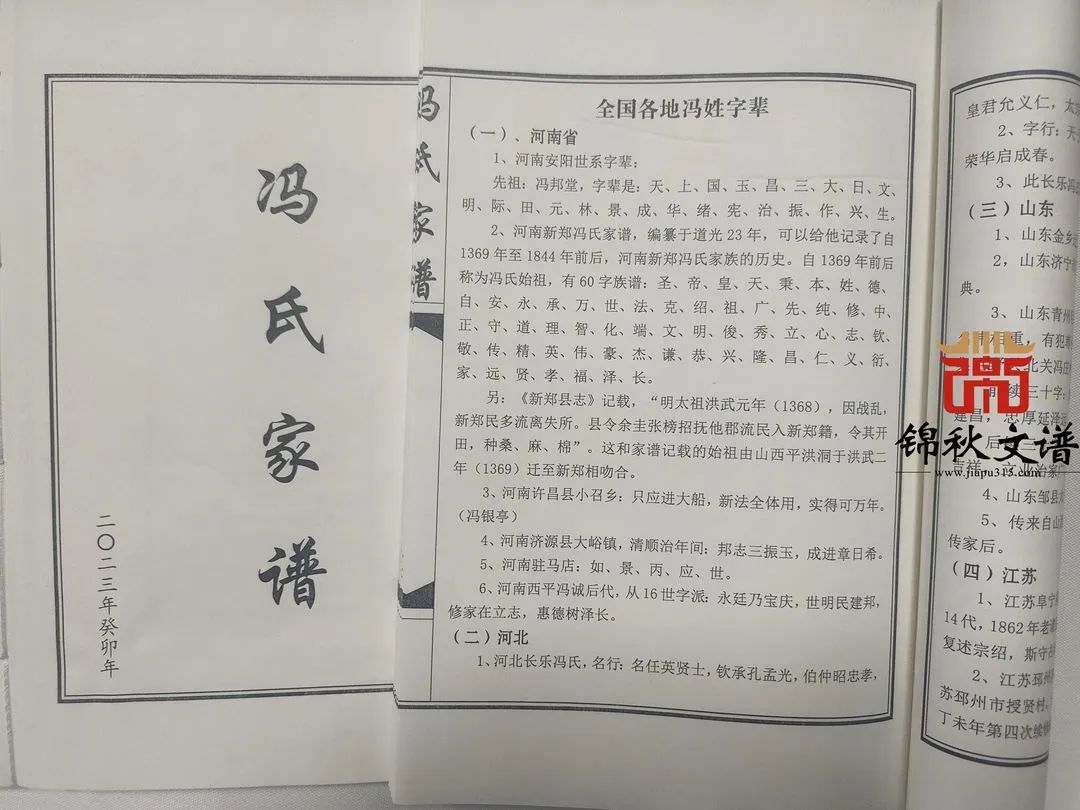 冯氏家谱
二〇二三年癸卯年
冯氏家谱
全国各地冯姓字辈
（一）、河南省
1、河南安阳世系字辈；
先祖：冯邦堂，字辈是：天、上、国、玉、昌、三、大、日、文、
明、际、田、元、林、景、成、华、绪、宪、治、振、作、兴、生。
2、河南新郑冯氏家谱，编纂于道光23年，可以给他记录了自
1369年至1844年前后，河南新郑冯氏家族的历史。自1369年前后
称为冯氏始祖，有60字族谱：圣、帝、皇、天、秉、本、姓、德、
自、安、永、承、万、世、法、克、绍、祖、广、先、纯、修、中、
正、守、道、理、智、化、端、文、明、俊、秀、立、心、志、钦、
敬、传、精、英、伟、豪、杰、谦、恭、兴、隆、昌、仁、义、衍、
家、远、贤、孝、福、泽、长。
另：《新郑县志》记载，“明太祖洪武元年（1368），因战乱，
新郑民多流离失所。县令余圭张榜招抚他郡流民入新郑籍，令其开
田，种桑、麻、棉”。这和家谱记载的始祖由山西平洪洞于洪武二
年（1369）迁至新郑相吻合。
3、河南许昌县小召乡：只应进大船，新法全体用，实得可万年。
（冯银亭）
4、河南济源县大峪镇，清顺治年间：邦志三振玉，成进章日希。
5、河南驻马店：如、景、丙、应、世。
6、河南西平冯诚后代，从16世字派：永廷乃宝庆，世明民建邦，
修家在立志，惠德树泽长。
（二）河北
1、河北长乐冯氏，名行：名任英贤士，钦承孔孟光，伯仲昭忠孝，
皇君允义仁，太
2、字行：天
荣华启成春。
3、此长乐冯氏
（三）山东
1、山东金乡
2，山东济宁
典。
3、山东青州
相重，有犯
北关冯
续三十字：
建昌，忠厚延泽
后
4、山东邹县
5、传来自山
传家后。
（四）江苏
1、江苏阜宁
14代，1862年老谱
复述宗绍，斯守
2、江苏邳州
苏邳州市授贤村，
丁未年第四次续修
锦秋文谱
www.jiapu315.com